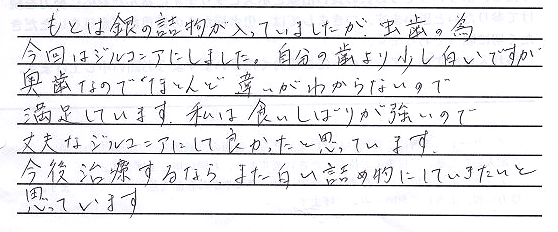 もとは銀の詰物が入っていましたが、虫歯の為
今回はジルコニアにしました。自分の歯より少し白いですが
奥歯なのでほとんど違いがわからないので
満足しています。私は食いしばりが強いので
丈夫なジルコニアにして良かったと思っています。
今後治療するなら、また白い詰め物にしていきたいと
思っています